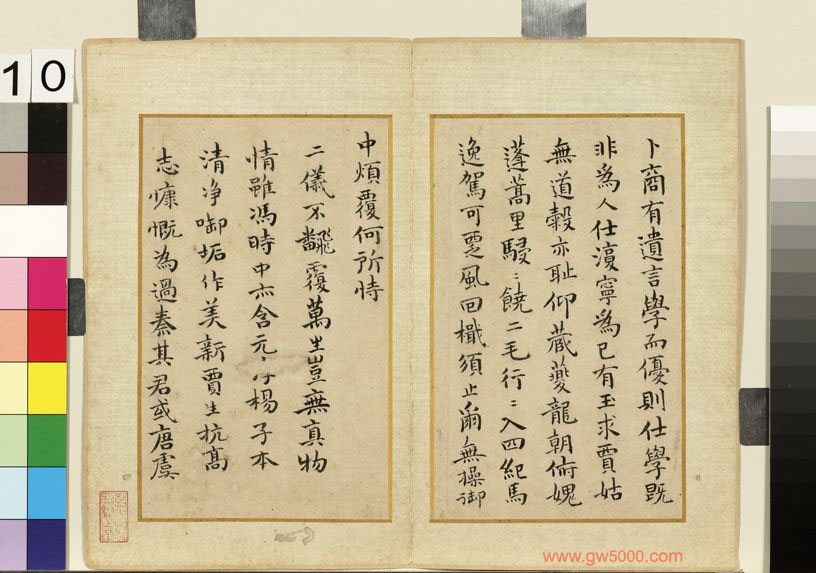 卜商有遺言學而優則仕學既
非為人仕寧為己有玉求賈姑
無道穀亦恥仰蔵夔龍朝俯媿
蓬蒿里駸〻饒二毛行〻入四紀馬
逸駕可乏風回檝須止爾無操御
中煩覆何所恃
二儀不翻覆萬生豈無真物
情雖馮時中亦含元楊子本
清净啣垢作美新賈生抗高
志慷慨為過秦其君或唐虞
10
www.gw5000.com